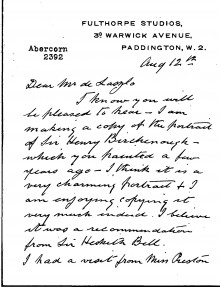 FULTHORPE STUDIOS,
3ᴬ WARWICK AVENUE,
Abercorn
2392
PADDINGTON, W. 2.
Aug 12th
Dear Mr de Laszlo
I know you will
be pleased to hear - I am
making a copy of the portrait
of Sir Henry Birchenough -
which you painted a few
years ago - I think it is a
very charming portrait & I
am enjoying copying it
very much indeed. I believe
it was a recommendation
from Sir Hesketh Bell.
I had a visit from Miss Preston